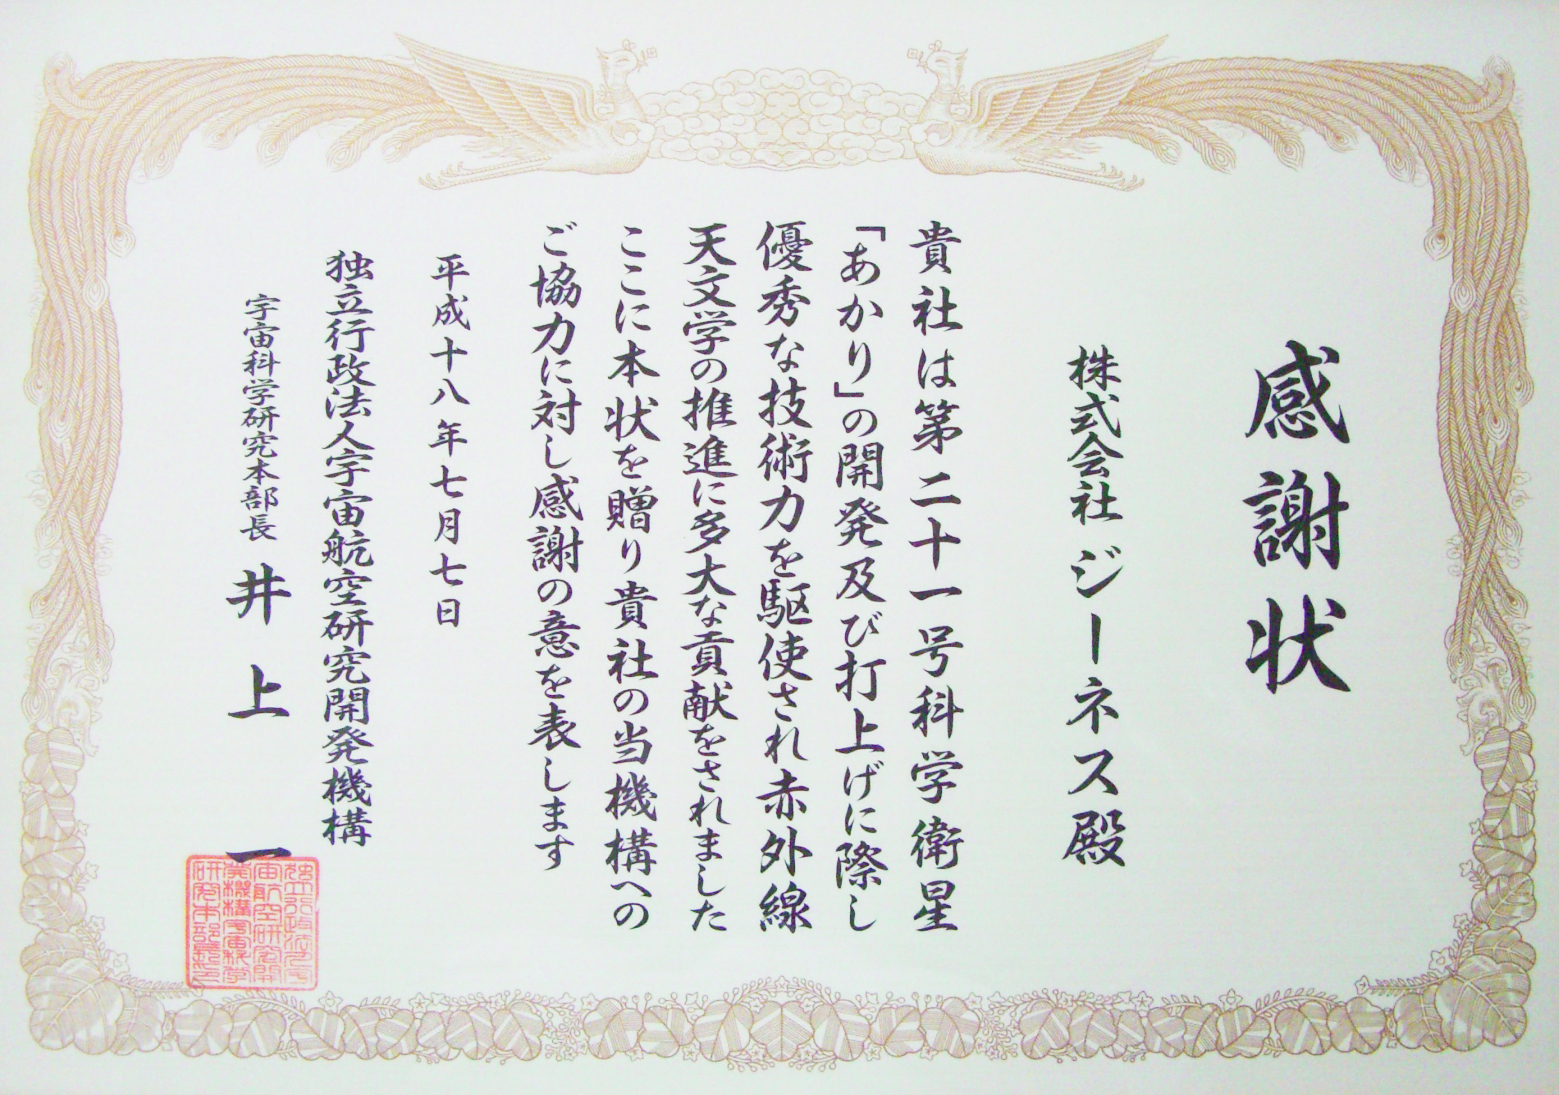 感謝状
株式会社 ジーネス殿
貴社は第二十一号科学衛星
「あかり」の開発及び打上げに際し
優秀な技術力を駆使され赤外線
天文学の推進に多大な貢献をされました
ここに本状を贈り貴社の当機構への
ご協力に対し感謝の意を表します
平成十八年七月七日
独立行政法人宇宙航空研究開発機構
宇宙科学研究本部長 井上 一